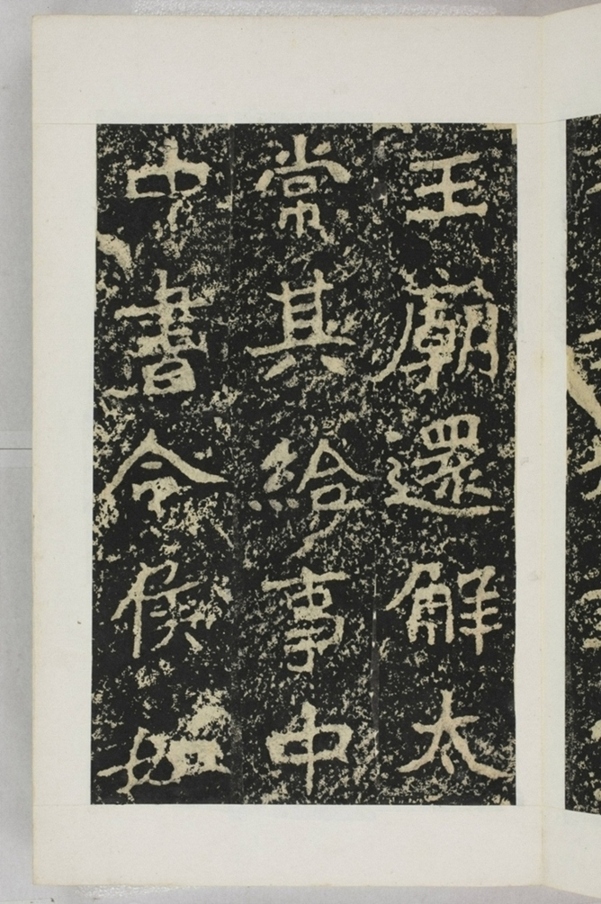 王廟還解太
常其給事中
中書令侯如